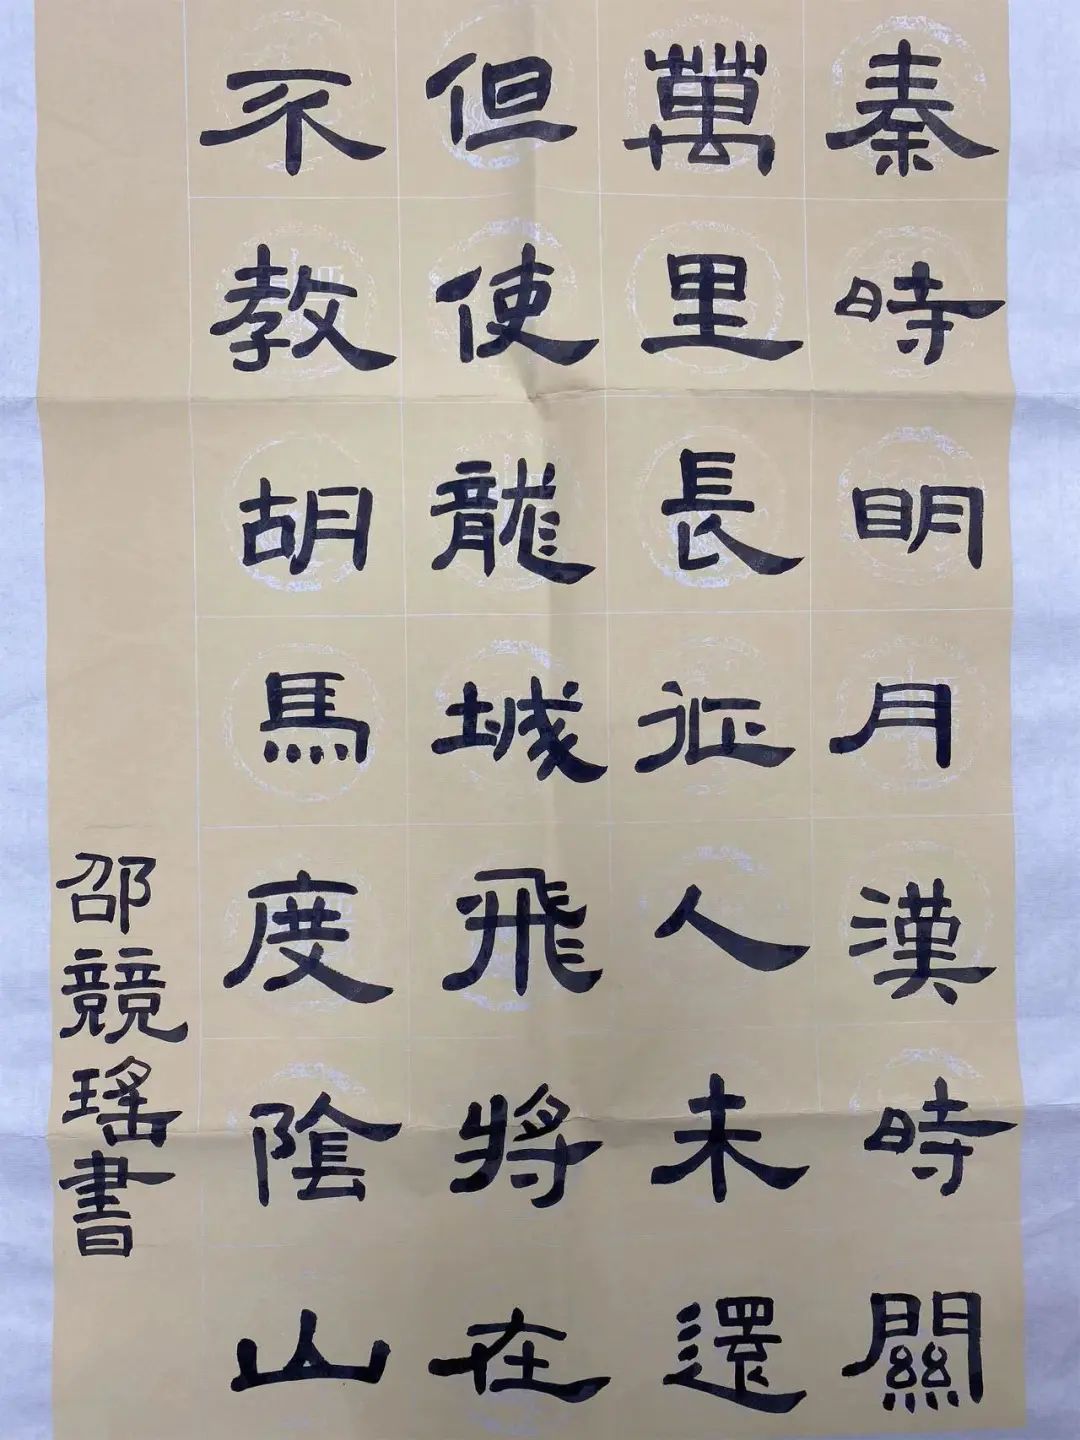 秦時明月漢時關
萬里長征人未還
但使龍城飛將在
不教胡馬度陰山
邵競瑤書